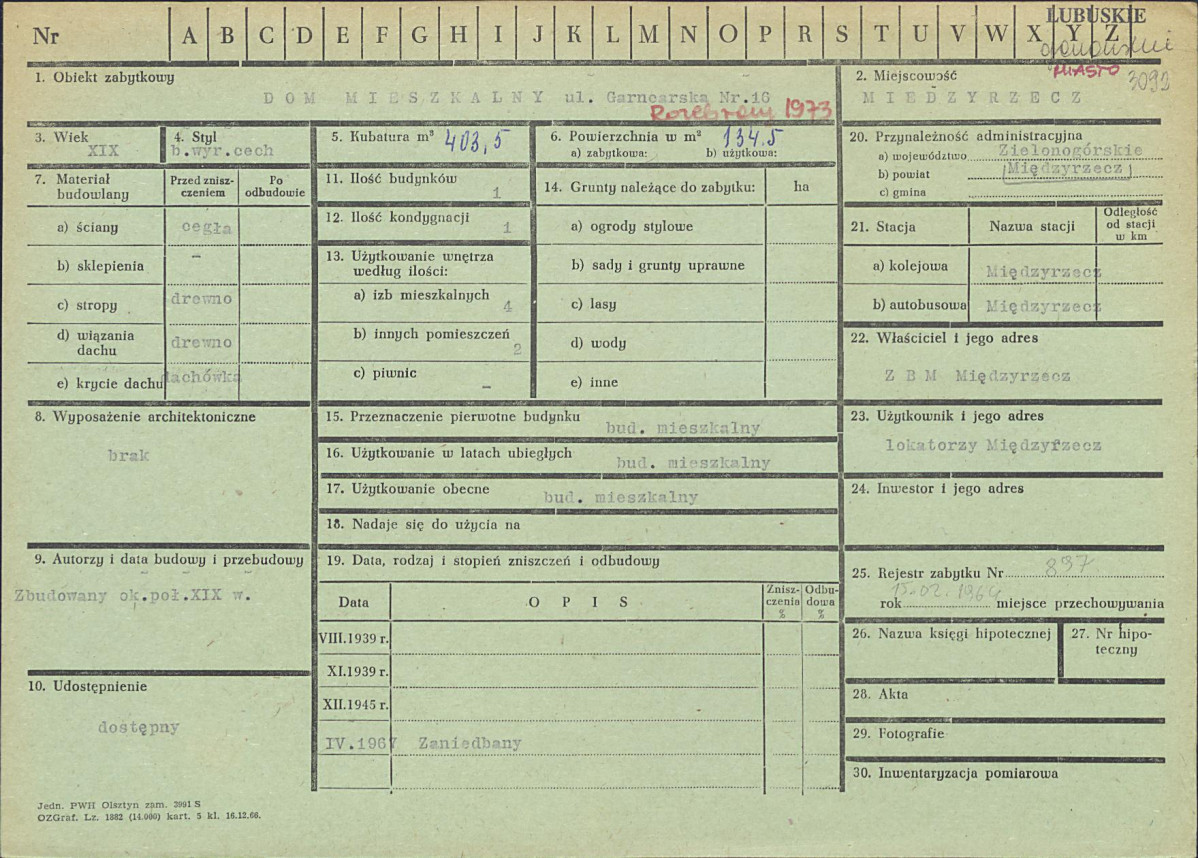 LUBUSKIE
Nr A B C D E F G H I J K L M N O P R S T U V W X Y Z
MIASTO 3092
1. Obiekt zabytkowy
DOM MIESZKALNY ul. Garncarska Nr.16
Rozebrany 1973
2. Miejscowość
MIEDZYRZECZ
3. Wiek
XIX
4. Styl
b.wyr.cech
5. Kubatura m³ 403,5
6. Powierzchnia w m² 134.5
a) zabytkowa: b) użytkowa:
7. Materiał budowlany
Przed znisz-
czeniem
Po
odbudowie
a) ściany cegła
b) sklepienia –
c) stropy drewno
d) wiązania
dachu drewno
e) krycie dachu dachówka
8. Wyposażenie architektoniczne
brak
9. Autorzy i data budowy i przebudowy
Zbudowany ok.poł.XIX w.
10. Udostępnienie
dostępny
11. Ilość budynków
1
12. Ilość kondygnacji
1
13. Użytkowanie wnętrza
według ilości:
a) izb mieszkalnych
4
b) innych pomieszczeń
2
c) piwnic –
14. Grunty należące do zabytku: ha
a) ogrody stylowe
b) sady i grunty uprawne
c) lasy
d) wody
e) inne
15. Przeznaczenie pierwotne budynku
bud. mieszkalny
16. Użytkowanie w latach ubiegłych
bud. mieszkalny
17. Użytkowanie obecne
bud. mieszkalny
18. Nadaje się do użycia na
19. Data, rodzaj i stopień zniszczeń i odbudowy
Data O P I S Znisz-
czenia
% Odbu-
dowa
%
VIII.1939 r.
XI.1939 r.
XII.1945 r.
IV.1967 Zaniedbany
20. Przynależność administracyjna
a) województwo Zielonogórskie
b) powiat Międzyrzecz
c) gmina
21. Stacja Nazwa stacji Odległość
od stacji
w km
a) kolejowa Międzyrzecz
b) autobusowa Międzyrzecz
22. Właściciel i jego adres
Z B M Międzyrzecz
23. Użytkownik i jego adres
lokatorzy Międzyrzecz
24. Inwestor i jego adres
25. Rejestr zabytku Nr 897
15.02.1964
rok miejsce przechowywania
26. Nazwa księgi hipotecznej
27. Nr hipo-
teczny
28. Akta
29. Fotografie
30. Inwentaryzacja pomiarowa
Jedn. PWH Olsztyn zam. 3991 S
OZGraf. Lz. 1882 (14.000) kart. 5 kl. 16.12.66.